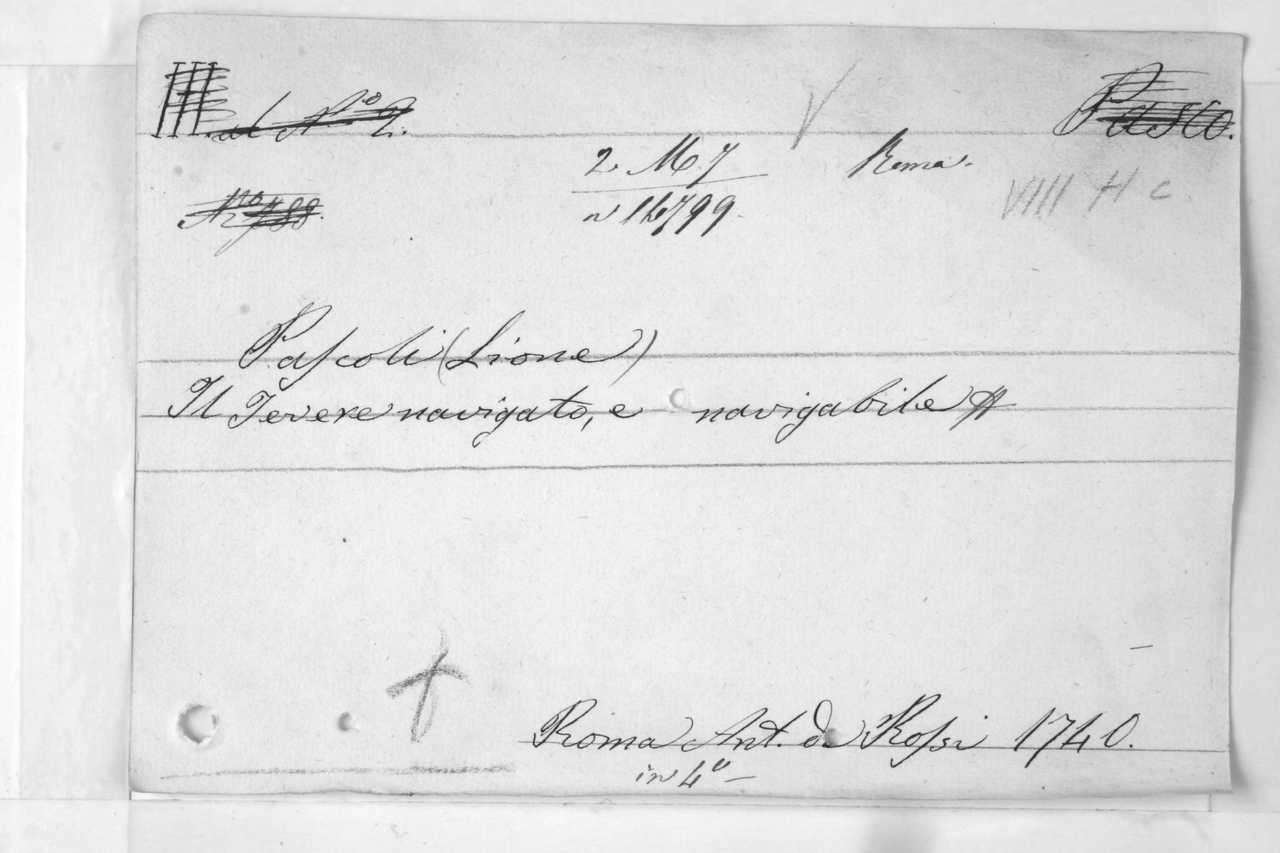 III. al No 2. Pasco.
2 M 7 Roma.
No 788. n 16799 VIII H c.
Pascoli (Lione)
Il Tevere navigato, e navigabile
Roma Ant. de Rossi 1740.
in 4o —